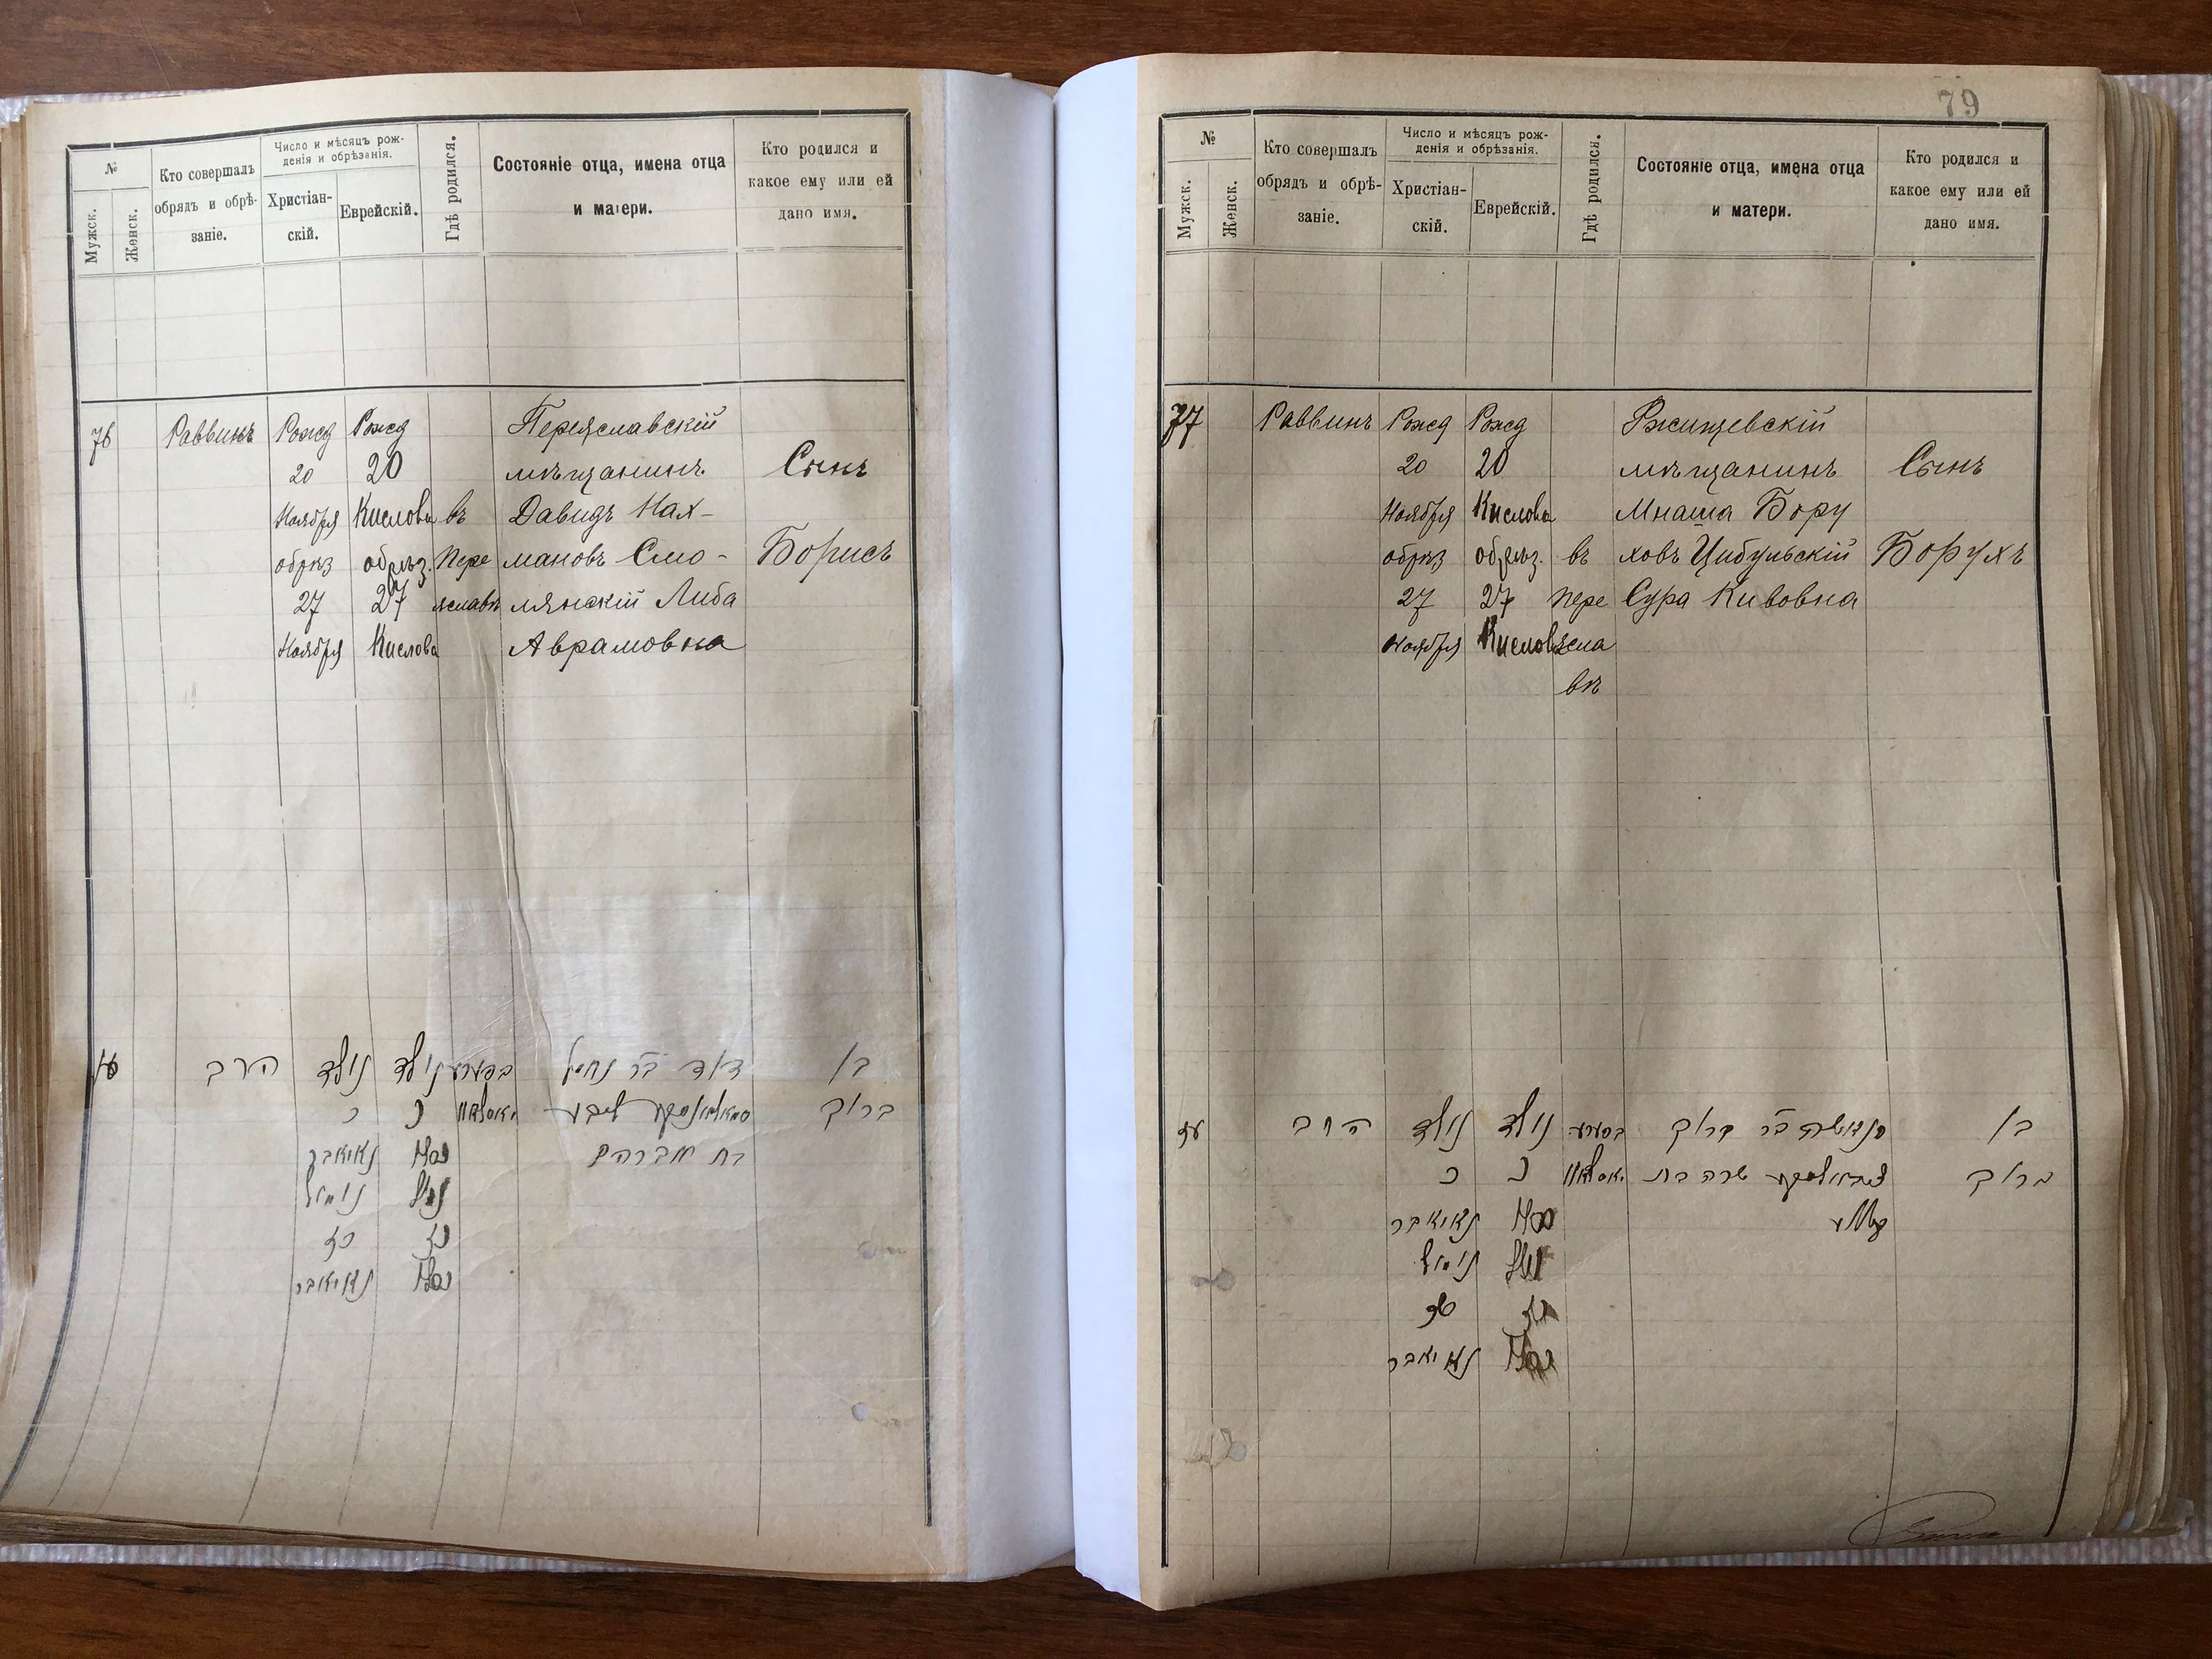 №
Мужск.
Женск.
Кто совершалъ
обрядъ и обрѣ-
заніе.
Число и мѣсяцъ рож-
денія и обрѣзанія.
Христіан-
скій.
Еврейскій.
Гдѣ родился.
Состояніе отца, имена отца
и матери.
Кто родился и
какое ему или ей
дано имя.
76
Раввинъ
Рожд
20
Ноября
обрѣз
27
Ноября
Рожд
20
Кислова
обрѣз.
27
Кислова
въ
Пере
яславѣ
Переяславскій
мѣщанинъ
Давидъ Нах-
мановъ Смо-
лянскій Либа
Аврамовна
Сынъ
Борисъ
עו
הרב
נולד
כ
נאיאבר
נימול
כז
נאיאבר
נולד
כ
כסלו
נימול
כז
כסלו
דוד בר נחמן
בת אברהם
בן
ברוך
79
№
Мужск.
Женск.
Кто совершалъ
обрядъ и обрѣ-
заніе.
Число и мѣсяцъ рож-
денія и обрѣзанія.
Христіан-
скій.
Еврейскій.
Гдѣ родился.
Состояніе отца, имена отца
и матери.
Кто родился и
какое ему или ей
дано имя.
77
Раввинъ
Рожд
20
Ноября
обрѣз
27
Ноября
Рожд
20
Кислова
обрѣз.
27
Кислова
въ
Пере
ясла
вѣ
Ржищевскій
мѣщанинъ
Мнаша Бору
ховъ Цибульскій
Сура Кивовна
Сынъ
Борухъ
עז
הרב
נולד
כ
נאיאבר
נימול
כז
נאיאבר
נולד
כ
כסלו
נימול
כז
כסלו
מנאשה בר ברוך
שרה בת
בן
ברוך